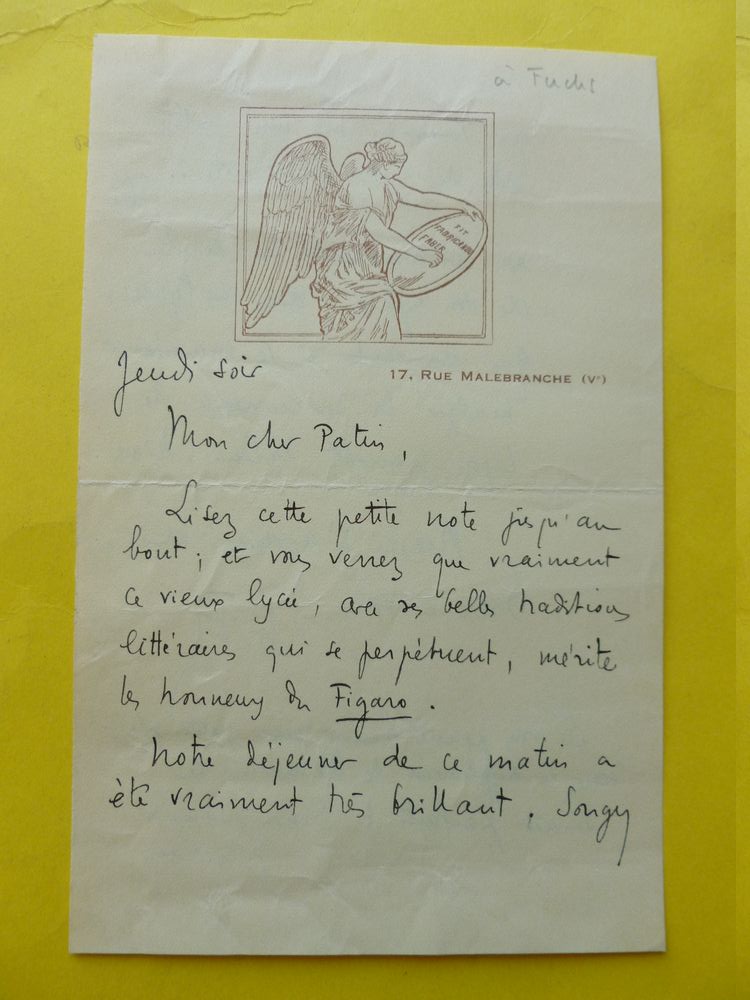 à Fuchs
FIT
FABRICANDO
FABER
Jeudi soir
17, RUE MALEBRANCHE (Ve)
Mon cher Patin,
Lisez cette petite note jusqu'au
bout ; et vous verrez que vraiment
ce vieux lycée, avec ses belles traditions
littéraires qui se perpétuent, mérite
les honneurs du Figaro.
Notre déjeuner de ce matin a
été vraiment très brillant. Songez